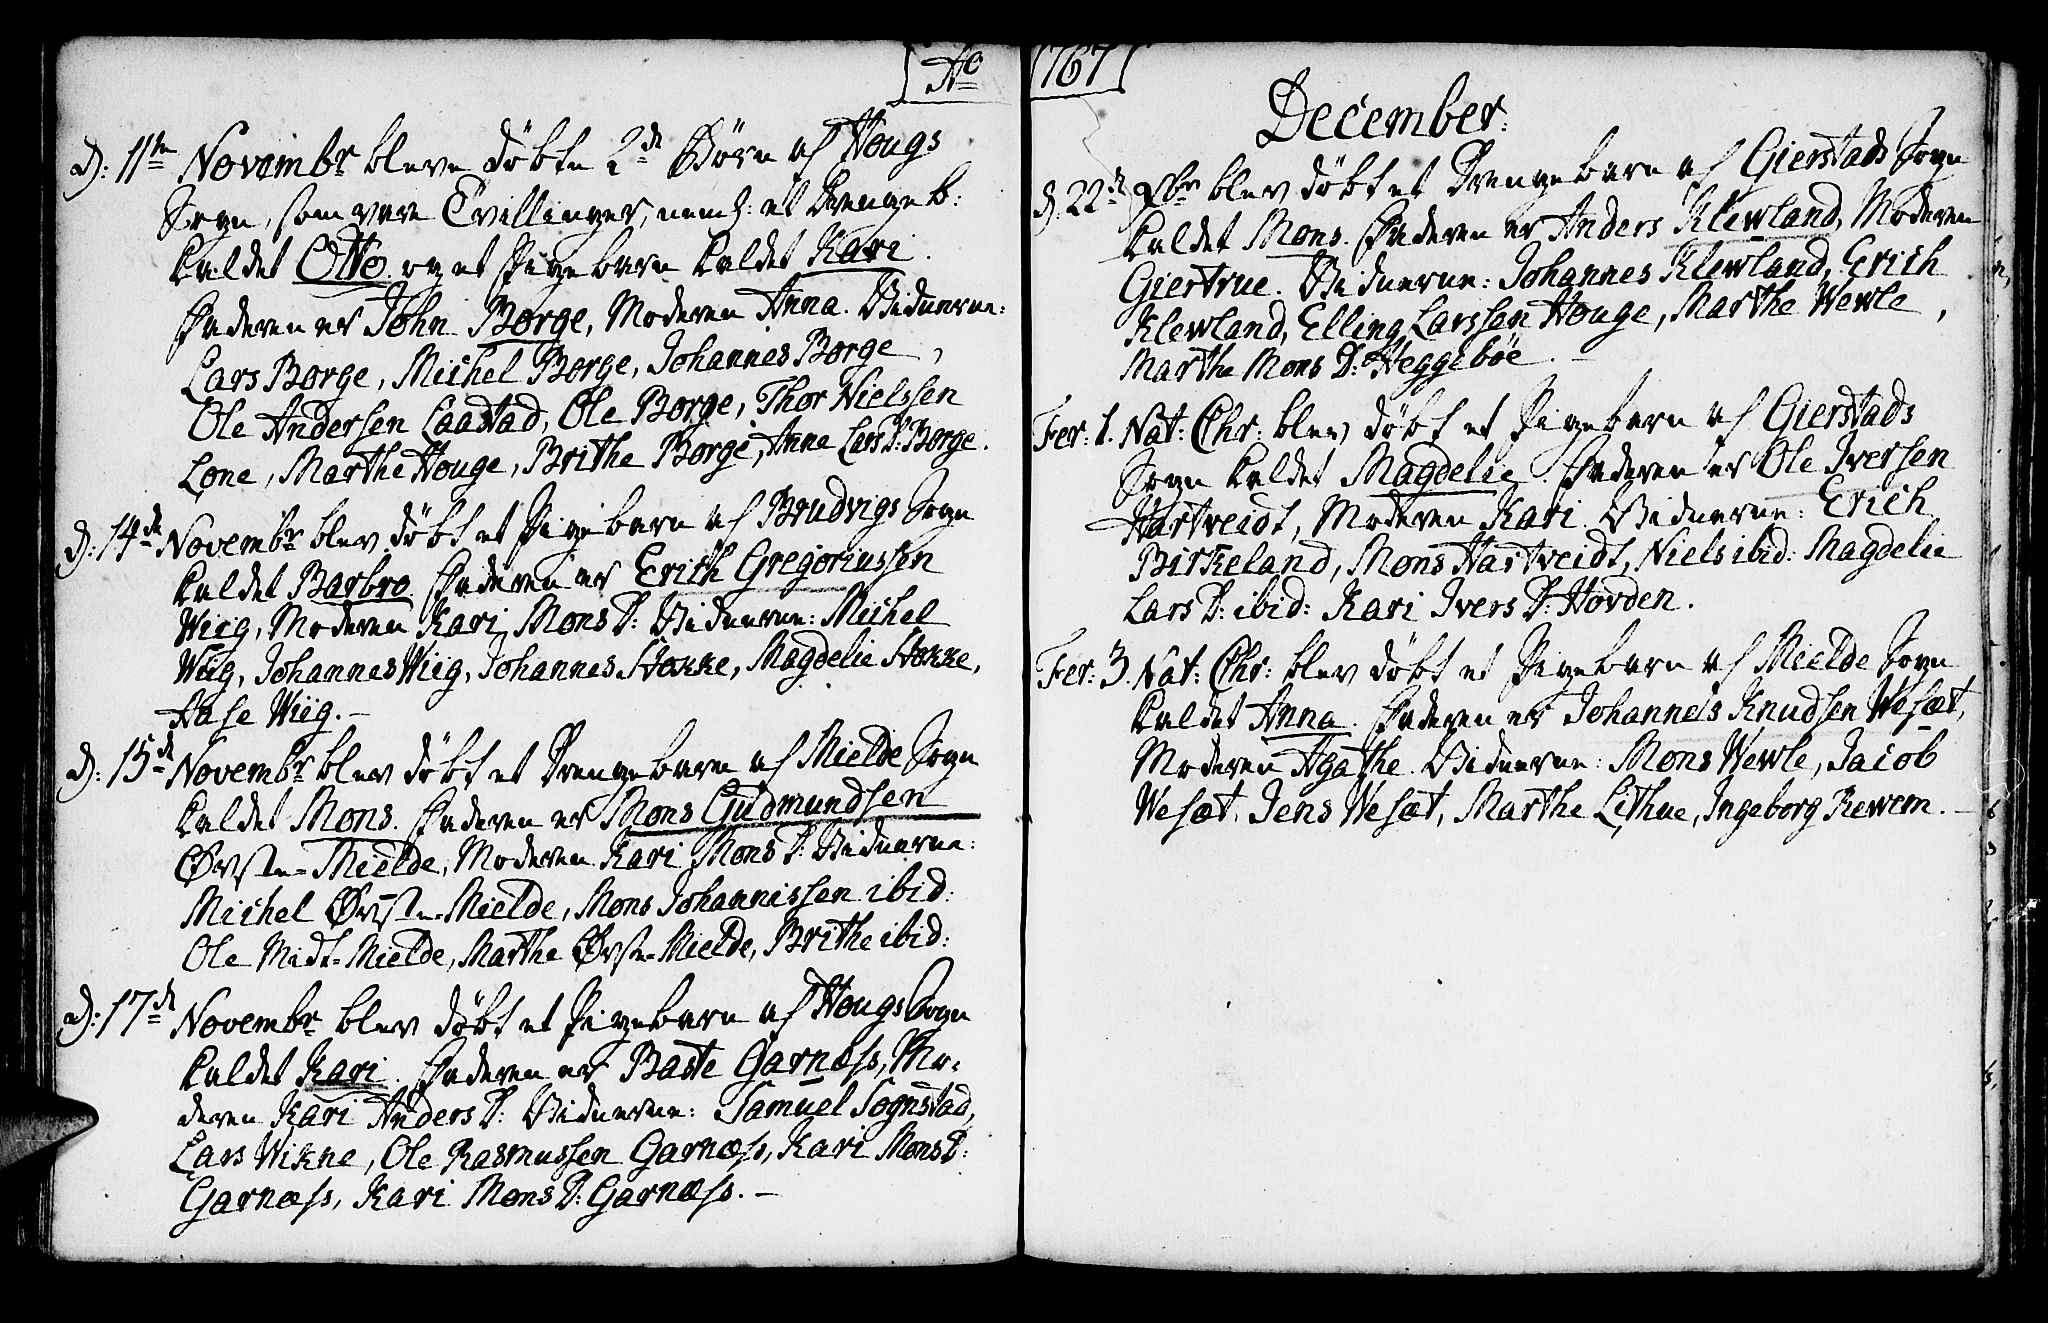 Ao
D: 11te Novembr bleve døbte 2de Børn af Hougs
Sogn, som vare Tvillinger, neml: et Drengeb:
kaldet Otto og et Pigebarn kaldet Kari.
Faderen er John Borge, Moderen Anna. Vidnerne:
Lars Borge, Michel Borge, Johannes Borge,
Ole Andersen Laastad, Ole Borge, Thor Nielssen
Lone, Marthe Houge, Brithe Borge, Anna Lars D: Borge.
D: 14de Novembr blev døbt et Pigebarn af Brudvigs Sogn
kaldet Barbro. Faderen er Erich Gregoriussen
Wiig, Moderen Kari Mons D: Vidnerne: Michel
Wiig, Johannes Wiig, Johannes Stokke, Magdelie Stokke,
Aase Wiig.
D: 15de Novembr blev døbt et Drengebarn af Mielde Sogn
kaldet Mons. Faderen er Mons Gudmundsen
Øvste-Mielde, Moderen Kari Mons D: Vidnerne:
Michel Øvste-Mielde, Mons Johannissen ibid:
Ole Midt-Mielde, Marthe Øvste-Mielde, Brithe ibid:
D: 17de Novembr blev døbt et Pigebarn af Hougs Sogn
kaldet Kari. Faderen er Baste Garnæss, Mo-
deren Kari Anders D: Vidnerne: Samuel Sognstad,
Lars Wikne, Ole Rasmussen Garnæss, Kari Mons D:
Garnæss, Kari Mons D: Garnæss.
1767
December:
D: 22de Xbr blev døbt et Drengebarn af Gierstads Sogn
kaldet Mons. Faderen er Anders Klewland, Moderen
Giertrue. Vidnerne: Johannes Klewland, Erich
Klewland, Elling Larssen Houge, Marthe Wewle,
Marthe Mons D: Heggebøe.
Fer: 1. Nat: Chr: blev døbt et Pigebarn af Gierstads
Sogn kaldet Magdelie. Faderen er Ole Iversen
Hartveidt, Moderen Kari. Vidnerne: Erich
Birkeland, Mons Hartveidt, Niels ibid: Magdelie
Lars D: ibid: Kari Ivers D: Hovden.
Fer: 3. Nat: Chr: blev døbt et Pigebarn af Mielde Sogn
kaldet Anna. Faderen er Johannes Knudsen Wesæt,
Moderen Agathe. Vidnerne: Mons Wewle, Jacob
Wesæt, Jens Wesæt, Marthe Lithue, Ingeborg Rewem.